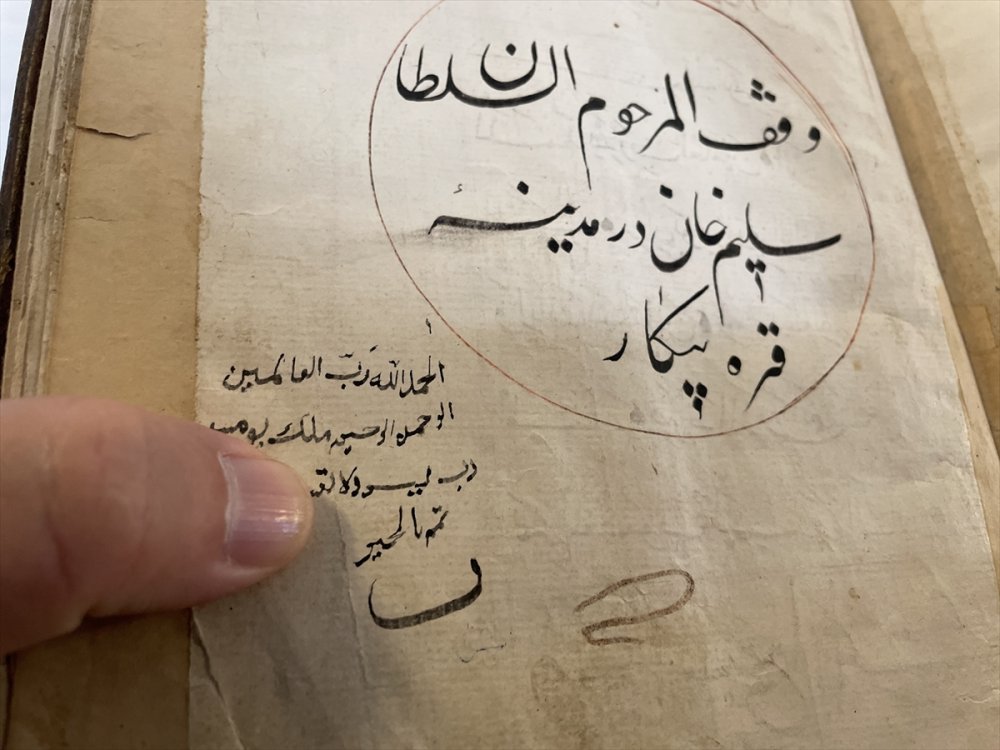 وقف المرحوم السلطان
سليم خان در مدينۀ
قره پيكار
الحمد الله رَبّ العالمين
الرحمن الرحيم ملك يوم
رب يسر ولا تعسر
تمم بالخير